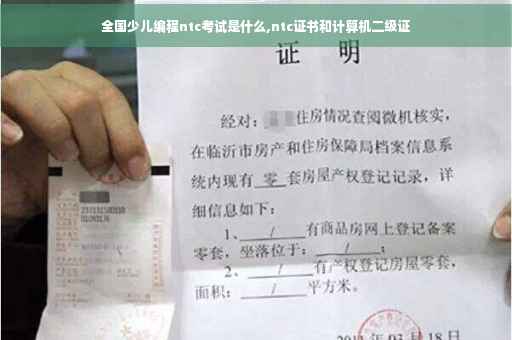 全国少儿编程ntc考试是什么,ntc证书和计算机二级证
证 明
经对： 住房情况查阅微机核实，
在临沂市房产和住房保障局档案信息系
统内现有 零 套房屋产权登记记录，详
细信息如下：
1、 / 有商品房网上登记备案
零套，坐落位于： / ；
2、 / 有产权登记房屋零套，
面积： / 平方米。
03 月 18 日